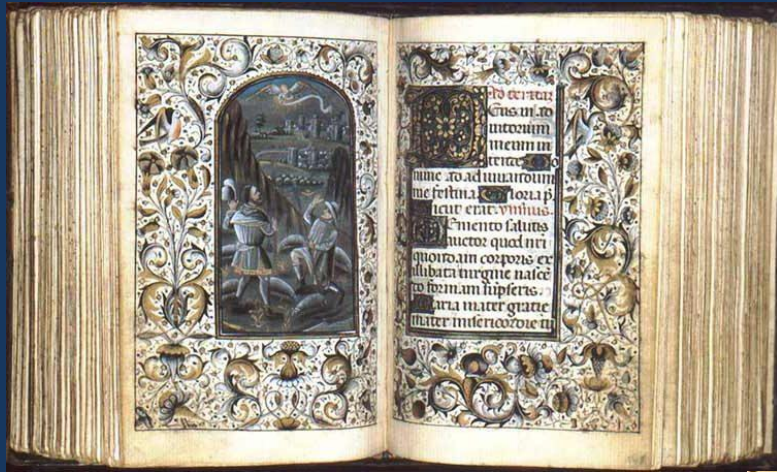 Ad tertiaz
DEus in ad
iutorium
meum in
tende Do
mine ad adiuuandum
me festina. Gloria p
Sicut erat. ymnus.
MEmento salutis
auctor quod nri
quondam corporis ex
illibata uirgine nascē
do formam sūpseris.
Maria mater gratie
mater misericordie tu